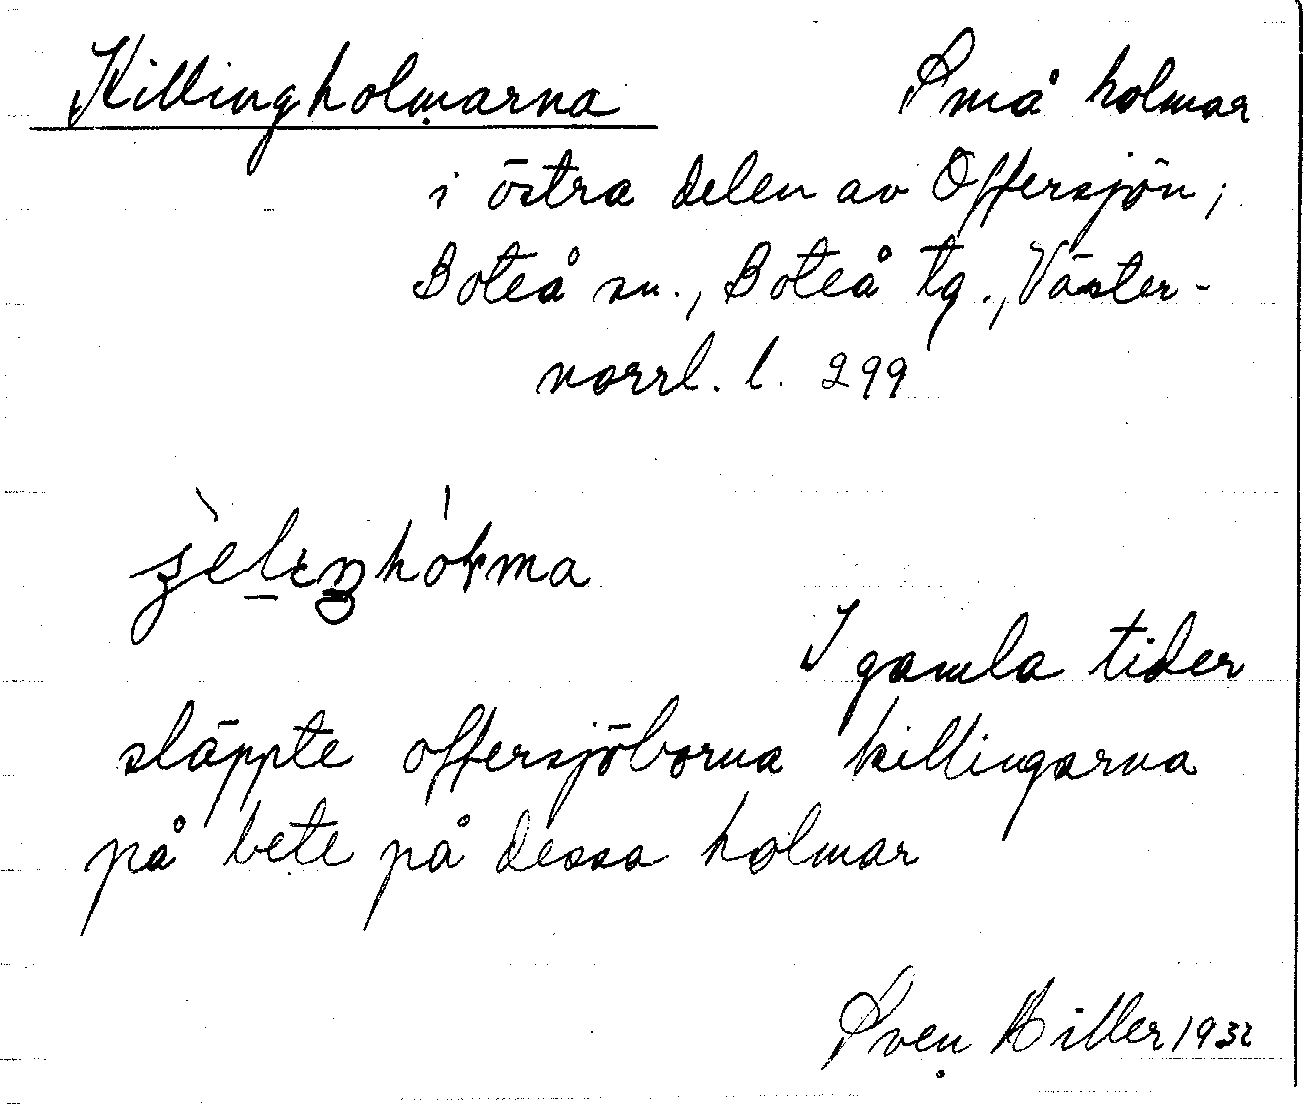 Killingholmarna Små holmar
i östra delen av Offersjön,
Boteå sn., Boteå tg., Väster-
norrl. l. 299
I gamla tider
släppte offersjöborna killingarna
på bete på dessa holmar
Sven Hiller 1932